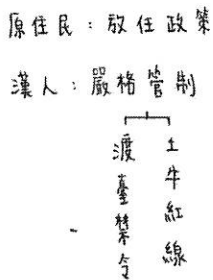 原住民：放任政策
漢人：嚴格管制
渡臺禁令
土牛紅線